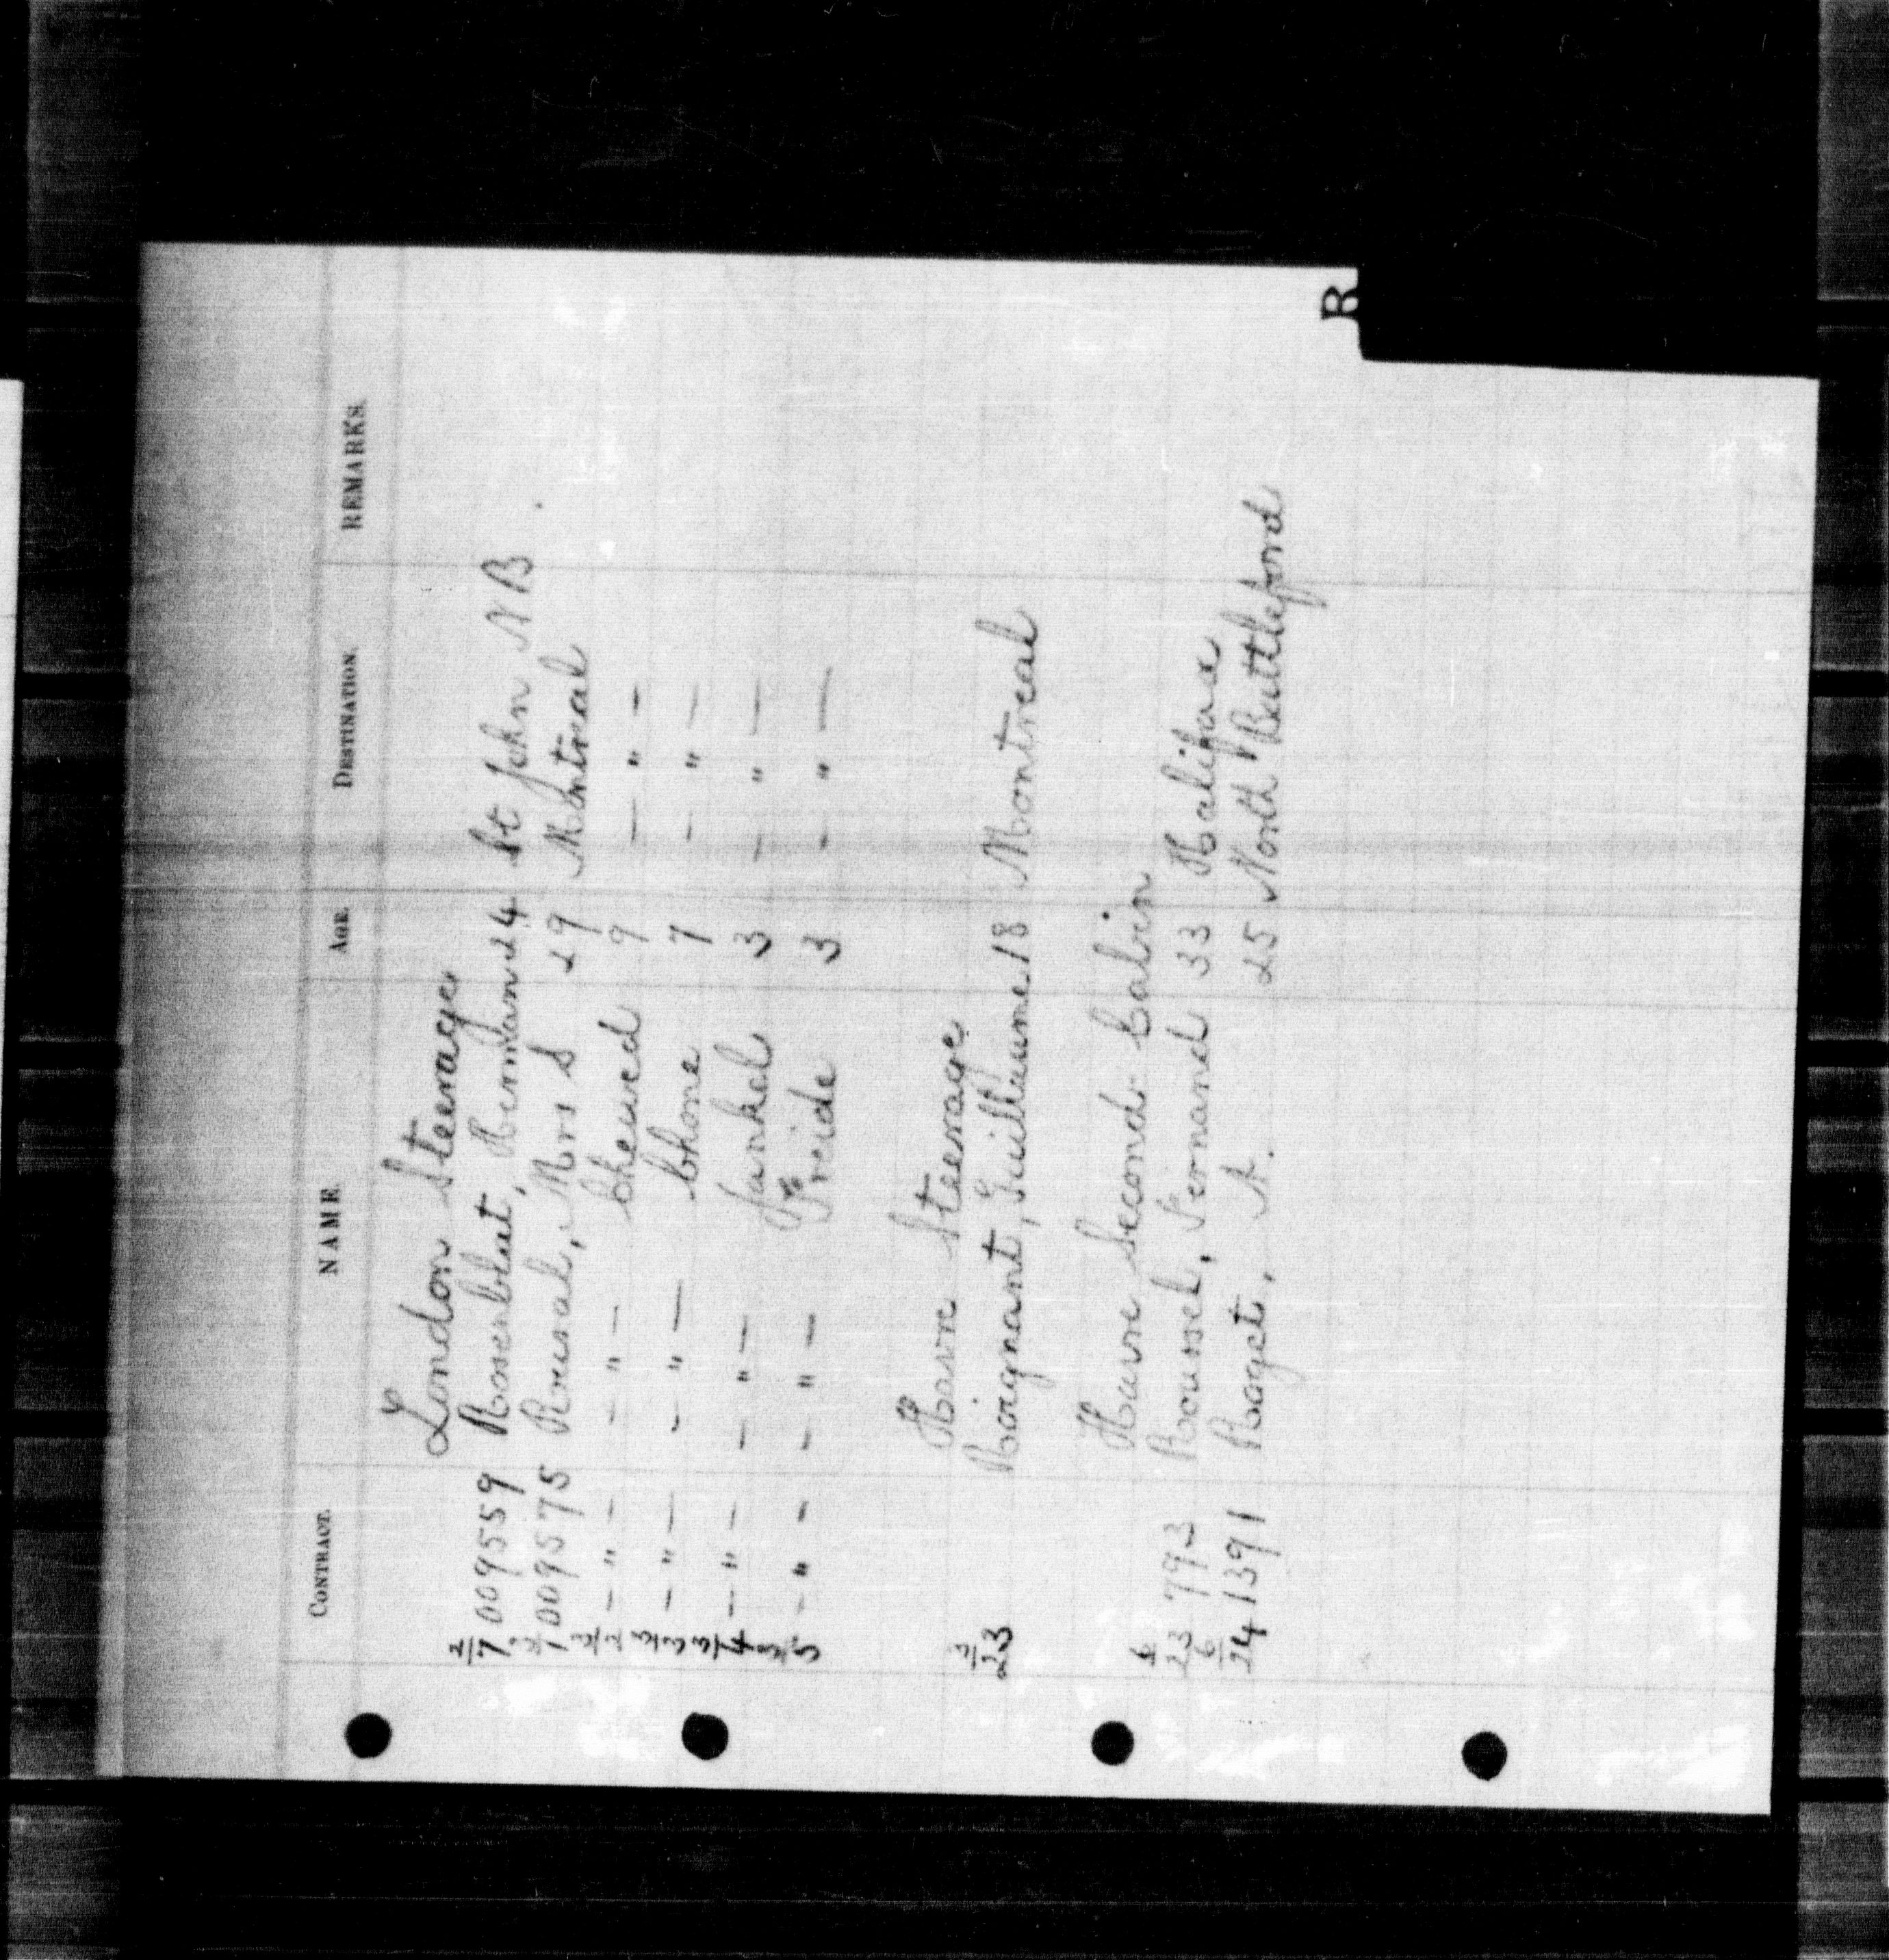 R
CONTRACT. NAME. AGE. DESTINATION. REMARKS.
London Steerage
2/7 009559 Rosenblut, Hermann 24 St John N B
3/1 009575 Rusal, Mrs S 29 Montreal
3/2 – " – – " – Cheived 9 – " –
3/3 – " – – " – Chone 7 – " –
3/4 – " – – " – Jankel 3 – " –
3/5 – " – – " – Freide 3 – " –
Havre Steerage
3/23 Roignant, Guillaume 18 Montreal
Havre Second Cabin
6/23 793 Roussel, Fernand 33 Halifax
6/24 1391 Roget, A. 25 North Battleford